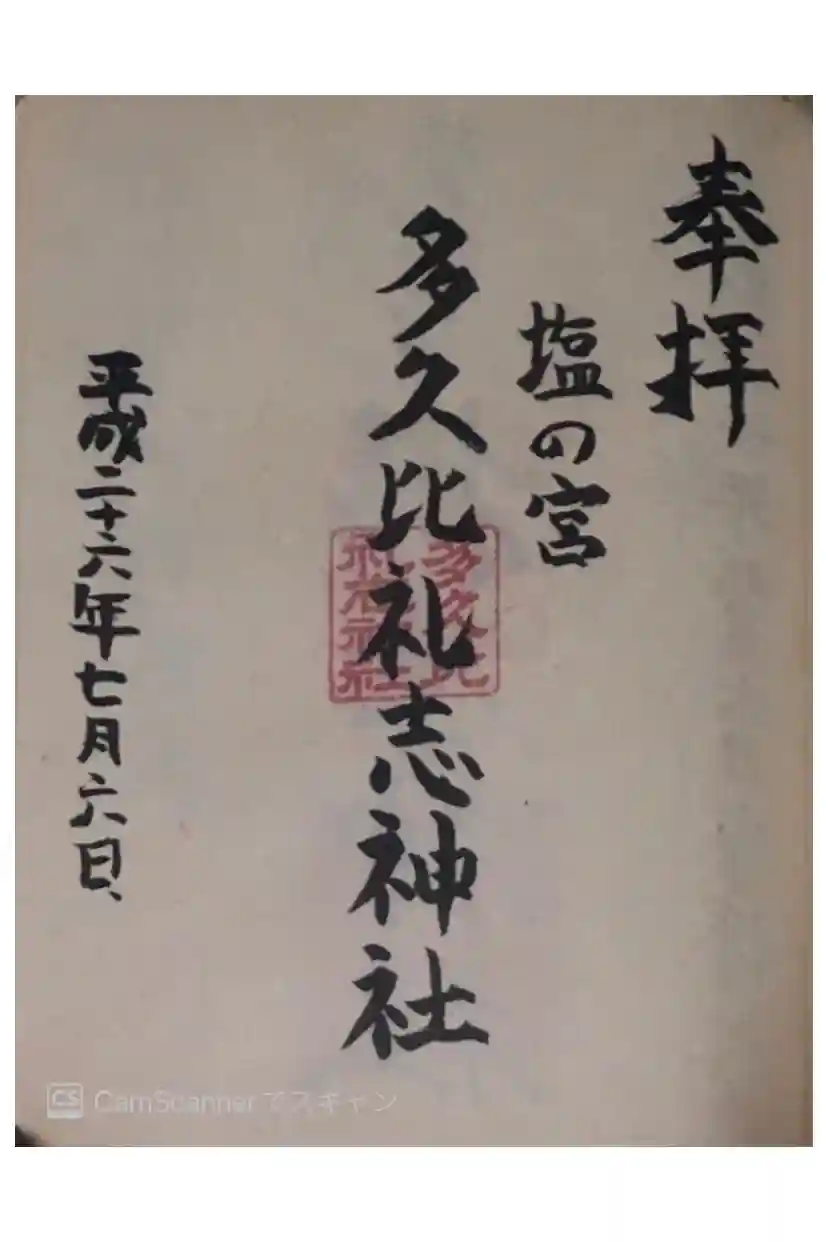 奉拝
塩の宮
多久比礼志神社
多久比
礼志神社
平成二十六年七月六日
CS CamScannerでスキャン